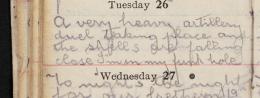 Tuesday 26
A very heavy artillery
duel taking place and
the shells are falling
close from my funk hole
Wednesday 27
To night's the night
for our